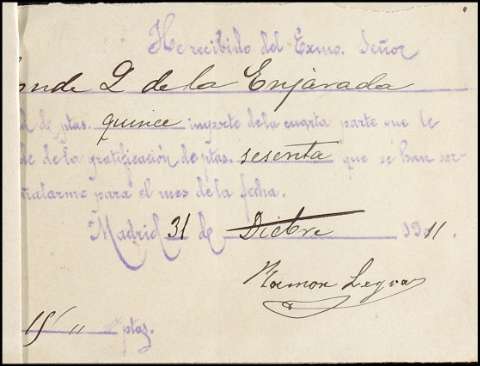 He recibido del Exmo. Señor
onde D de la Enjarada
d de ptas. quince importe de la cuarta parte que le
de de la gratificación de ptas. sesenta que se han ser
ñalarme para el mes de la fecha.
Madrid 31 de Dicbre 1911.
Ramon Legra
15 " ptas.